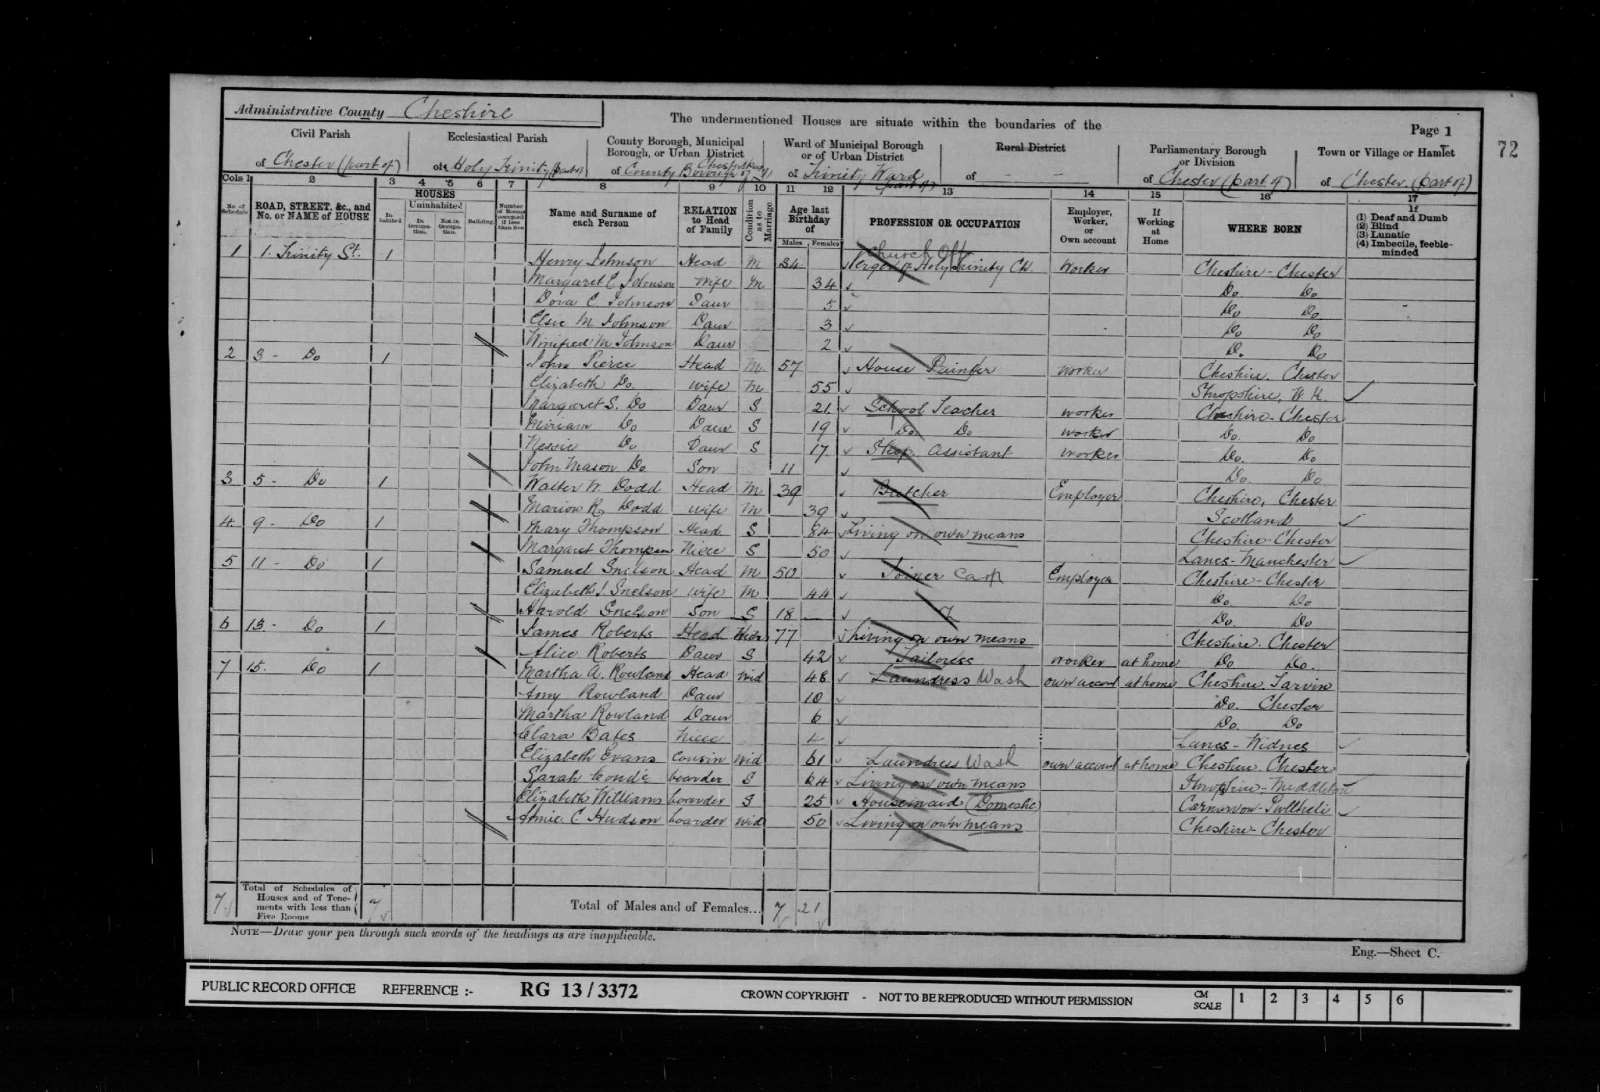 Administrative County Cheshire
The undermentioned Houses are situate within the boundaries of the
Page 1
72
Civil Parish
of Chester (part of)
Ecclesiastical Parish
of Holy Trinity (part of)
County Borough, Municipal Borough, or Urban District
of County Borough of Chester
Ward of Municipal Borough or of Urban District
of Trinity Ward (part of)
Rural District
of — —
Parliamentary Borough or Division
of Chester (part of)
Town or Village or Hamlet
of Chester (part of)
Cols 1 2 3 4 5 6 7 8 9 10 11 12 13 14 15 16 17
No. of Schedule
ROAD, STREET, &c., and No. or NAME of HOUSE
HOUSES
Inhabited
Uninhabited
In Occupation.
Not in Occupation.
Building
Number of Rooms occupied if less than five
Name and Surname of each Person
RELATION to Head of Family
Condition as to Marriage
Age last Birthday of
Males Females
PROFESSION OR OCCUPATION
Employer, Worker, or Own account
If Working at Home
WHERE BORN
If (1) Deaf and Dumb (2) Blind (3) Lunatic (4) Imbecile, feeble-minded
1 1 Trinity St. 1 Henry Johnson Head M 34 Church Off Verger of Holy Trinity Ch Worker Cheshire - Chester
Margaret E Johnson Wife M 34 Do Do
Dora C. Johnson Daur 5 Do Do
Elsie M Johnson Daur 3 Do Do
Winifred M Johnson Daur 2 Do Do
2 3 - Do 1 John Pierce Head M 57 House Painter Worker Cheshire. Chester
Elizabeth Do Wife M 55 Shropshire,
Margaret S. Do Daur S 21 School Teacher worker Cheshire - Chester
Miriam Do Daur S 19 Do Do worker Do Do
Nessie Do Daur S 17 Shop Assistant worker Do Do
John Mason Do Son 11 Do Do
3 5 - Do 1 Walter W. Dodd Head M 39 Butcher Employer Cheshire, Chester
Marion R. Dodd Wife M 39 Scotland
4 9 - Do 1 Mary Thompson Head S 84 Living on own means Cheshire - Chester
Margaret Thompson Niece S 50 Lancs - Manchester
5 11 - Do 1 Samuel Snelson Head M 50 Joiner Carp Employer Cheshire - Chester
Elizabeth J Snelson Wife M 44 Do Do
Harold Snelson Son S 18 Do Do
6 13 - Do 1 James Roberts Head Widr 77 Living on own means Cheshire. Chester
Alice Roberts Daur S 42 Tailoress worker at home Do Do
7 15. Do 1 Martha A. Rowland Head Wid 48 Laundress Wash own accout at home Cheshire Tarvin
Amy Rowland Daur 10 Do Chester
Martha Rowland Daur 6 Do Do
Clara Bates Niece 4 Lancs - Widnes
Elizabeth Evans Cousin Wid 61 Laundress Wash own accout at home Cheshire. Chester
Sarah boarder S 64 Living on own means Middleton
Elizabeth Williams boarder S 25 Housemaid (Domestic) Carnarvon - Pwllheli
Annie C Hudson boarder Wid 50 Living on own means Cheshire - Chester
7 Total of Schedules of Houses and of Tenements with less than Five Rooms 7
Total of Males and of Females... 7 21
NOTE—Draw your pen through such words of the headings as are inapplicable.
Eng.—Sheet C.
PUBLIC RECORD OFFICE REFERENCE :- RG 13/3372 CROWN COPYRIGHT - NOT TO BE REPRODUCED WITHOUT PERMISSION CM SCALE 1 2 3 4 5 6